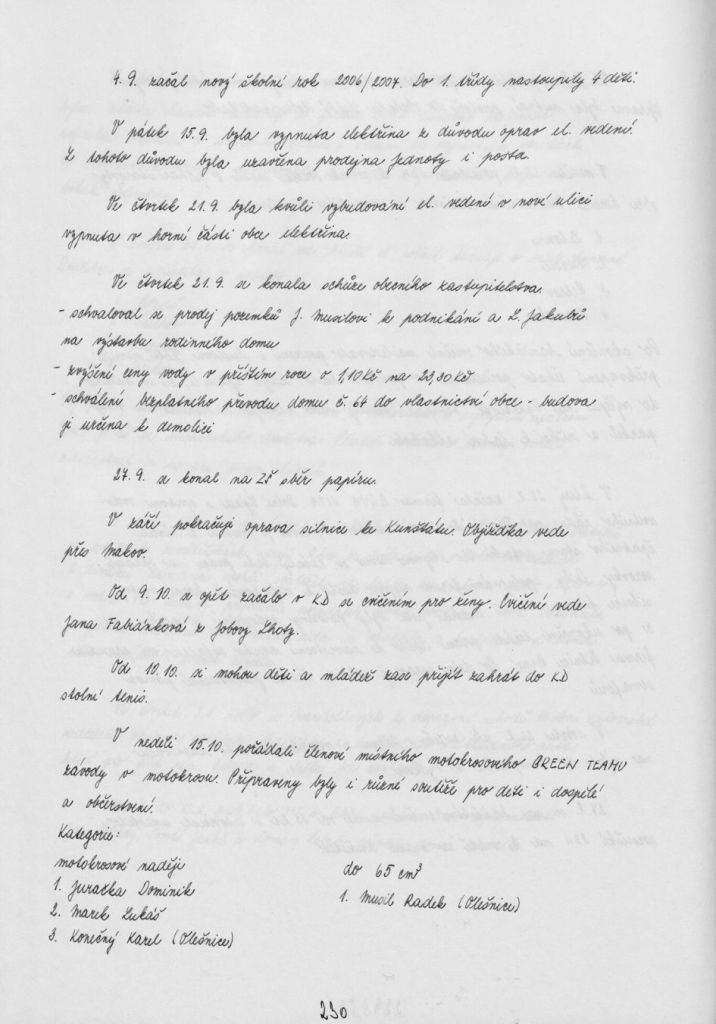 4. 9. začal nový školní rok 2006/2007. Do 1. třídy nastoupily 4 děti.
V pátek 15.9. byla vypnuta elektřina z důvodu oprav el. vedení.
Z tohoto důvodu byla uzavřena prodejna Jednoty i pošta.
Ve čtvrtek 21.9. byla kvůli vybudování el. vedení v nové ulici
vypnuta v horní části obce elektřina.
Ve čtvrtek 21.9. se konala schůze obecního zastupitelstva.
- schvaloval se prodej pozemků J. Musilovi k podnikání a L. Jakubů
na výstavbu rodinného domu
- zvýšení ceny vody v příštím roce o 1,10 Kč na 23,30 Kč
- schválení bezplatného převodu domu č. 64 do vlastnictví obce - budova
je určena k demolici
27.9. se konal na ZŠ sběr papíru.
V září pokračuje oprava silnice ke Kunštátu. Objížďka vede
přes Makov.
Od 9.10. se opět začalo v KD se cvičením pro ženy. Cvičení vede
Jana Fabiánková z Jobovy Lhoty.
Od 10.10. si mohou děti a mládež zase přijít zahrát do KD
stolní tenis.
V neděli 15.10. pořádali členové místního motokrosového GREEN TEAMU
závody v motokrosu. Připraveny byly i různé soutěže pro děti i dospělé
a občerstvení.
Kategorie:
motokrosové naděje
1. Juračka Dominik
2. Marek Lukáš
3. Konečný Karel (Olešnice)
do 65 cm³
1. Musil Radek (Olešnice)
230